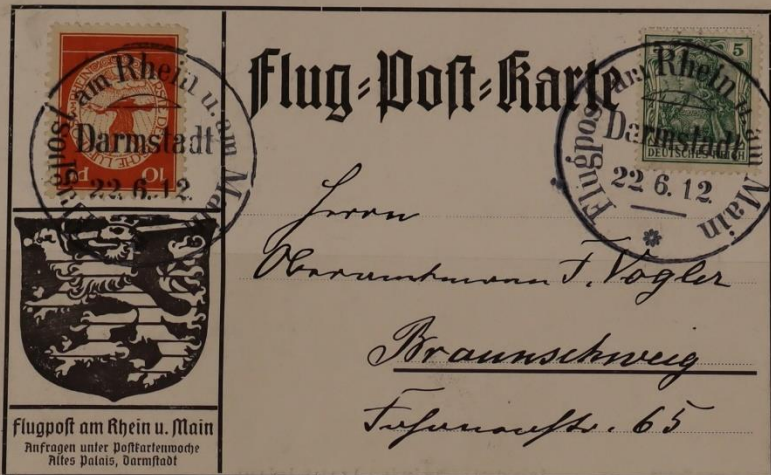 Flug-Post-Karte
Flugpost am Rhein u. am Main
Darmstadt
22.6.12.
10
5
DEUTSCHES REICH
Flugpost am Rhein u. am Main
Darmstadt
22.6.12.
Herrn
Oberamtmann F. Vogler
Braunschweig
65
Flugpost am Rhein u. Main
Anfragen unter Postkartenwoche
Altes Palais, Darmstadt